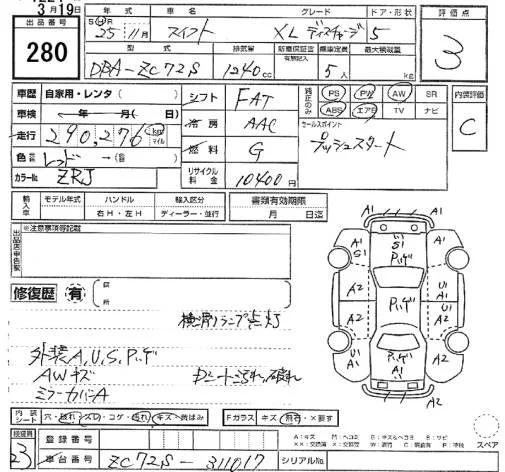 3月19日
年式 車名 グレード ドア・形状 評価点
出品番号
280
S H R 25年11月 スイフト XL ディスチャージ 5
3
型式 排気量 新車保証書 有無記入 乗車定員 最大積載量
DBA-ZC72S 1240cc 5人 kg
車歴 自家用・レンタ( ) シフト FAT 純正のみ PS PW AW SR 内装評価
車検 年 月( 日) ABS エアB TV ナビ
C
走行 290,276 km マイル 冷房 AAC セールスポイント
プッシュスタート
色 レッド → ( ) 燃料 G
カラーNo. ZRJ リサイクル料金 10400円
輸入車 モデル年式 ハンドル 輸入区分 書類有効期限
右H・左H ディーラー・並行 月 日迄
出品店申告欄 ※注意事項等記載
A1 A1
A1 S1 S1 A1
P,ハゲ
A2 P,ハゲ U1 A1
A2 U1 A2
P,ハゲ
A1 A1
修復歴 有 箇所
横滑りランプ点灯
外装A,U,S,P,ハゲ
AWキズ Dシート汚れ、破れ
ミラーカバーA
内装シート 穴・破れ・スレ・コゲ・汚れ・キズ・黄ばみ Fガラス キズ・無有・×要す
スペア
検査員 登録番号 A:キズ M:ヘコミ B:キズ&ヘコミ S:サビ
23 車台番号 ZC72S-311017 シリアルNo.